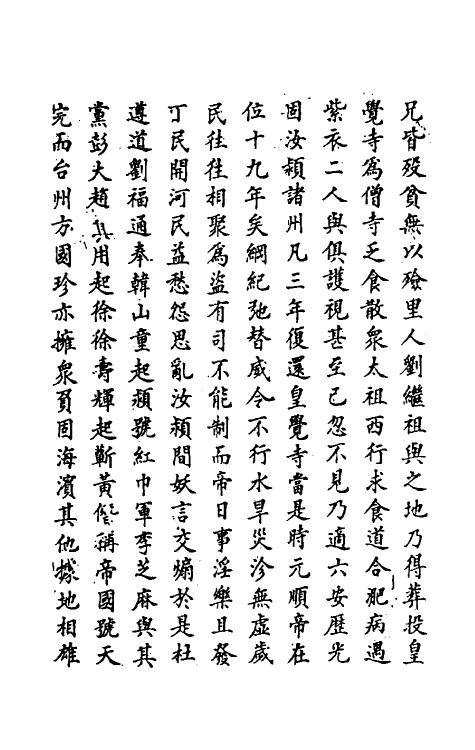 兄皆歿貧無以殮里人劉繼祖與之地乃得葬投皇
覺寺為僧寺乏食散衆太祖西行求食道合肥病遇
紫衣二人與俱護視甚至已忽不見乃適六安歷光
固汝潁諸州凡三年復還皇覺寺當是時元順帝在
位十九年矣綱紀弛替威令不行水旱災沴無虛歲
民往往相聚為盜有司不能制而帝日事淫樂且發
丁民開河民益愁怨思亂汝潁間妖言交煽於是杜
遵道劉福通奉韓山童起潁號紅巾軍李芝麻與其
黨彭大趙其用起徐徐壽輝起蘄黃僭稱帝國號天
完而台州方國珍亦擁衆負固海濱其他據地相雄